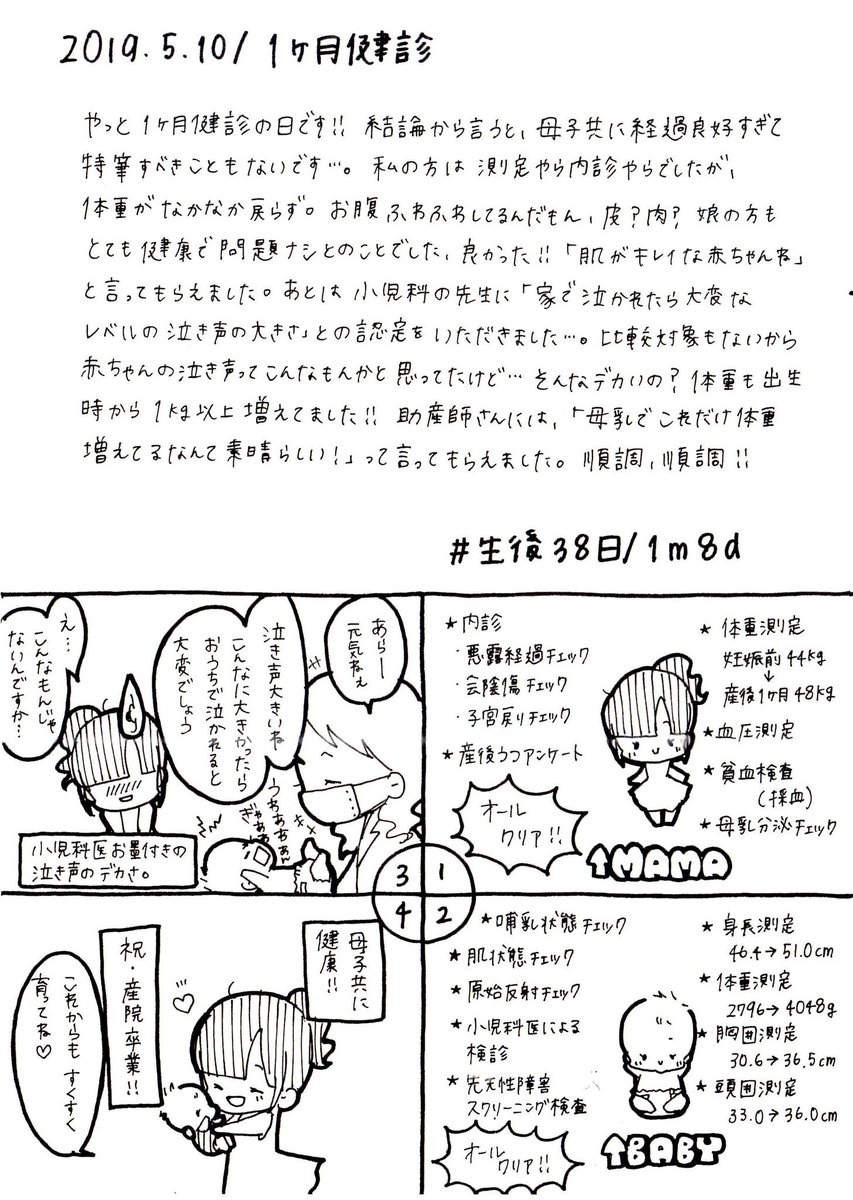 2019.5.10/1ヶ月健診
やっと1ヶ月健診の日です!! 結論から言うと、母子共に経過良好すぎて
特筆すべきこともないです…。私の方は測定やら内診やらでしたが、
体重がなかなか戻らず。お腹ふわふわしてるんだもん、皮?肉?娘の方も
とても健康で問題ナシとのことでした、良かった!!「肌がキレイな赤ちゃんね」
と言ってもらえました。あとは小児科の先生に「家で泣かれたら大変な
レベルの泣き声の大きさ」との認定をいただきました…。比較対象もないから
赤ちゃんの泣き声ってこんなもんかと思ってたけど…そんなデカいの?体重も出生
時から1kg以上増えてました!! 助産師さんには、「母乳でこれだけ体重
増えてるなんて素晴らしい!」って言ってもらえました。順調、順調!!
#生後38日/1m8d
1
★内診
・悪露経過チェック
・会陰傷チェック
・子宮戻りチェック
★産後うつアンケート
オール
クリア!!
★体重測定
妊娠前44kg
↓
産後1ヶ月48kg
★血圧測定
★貧血検査
(採血)
★母乳分泌チェック
↑MAMA
2
★哺乳状態チェック
★肌状態チェック
★原始反射チェック
★小児科医による
検診
★先天性障害
スクリーニング検査
オール
クリア!!
★身長測定
46.4→51.0cm
★体重測定
2796→4048g
★胸囲測定
30.6→36.5cm
★頭囲測定
33.0→36.0cm
↑BABY
3
あらー
元気ねぇ
泣き声大きいね
こんなに大きかったら
おうちで泣かれると
大変でしょう
うああああん
ぎゃああ
え…
こんなもんじゃ
ないんですか…
小児科医お墨付きの
泣き声のデカさ。
4
母子共に
健康!!
祝・産院卒業!!
これからもすくすく
育ってね♡